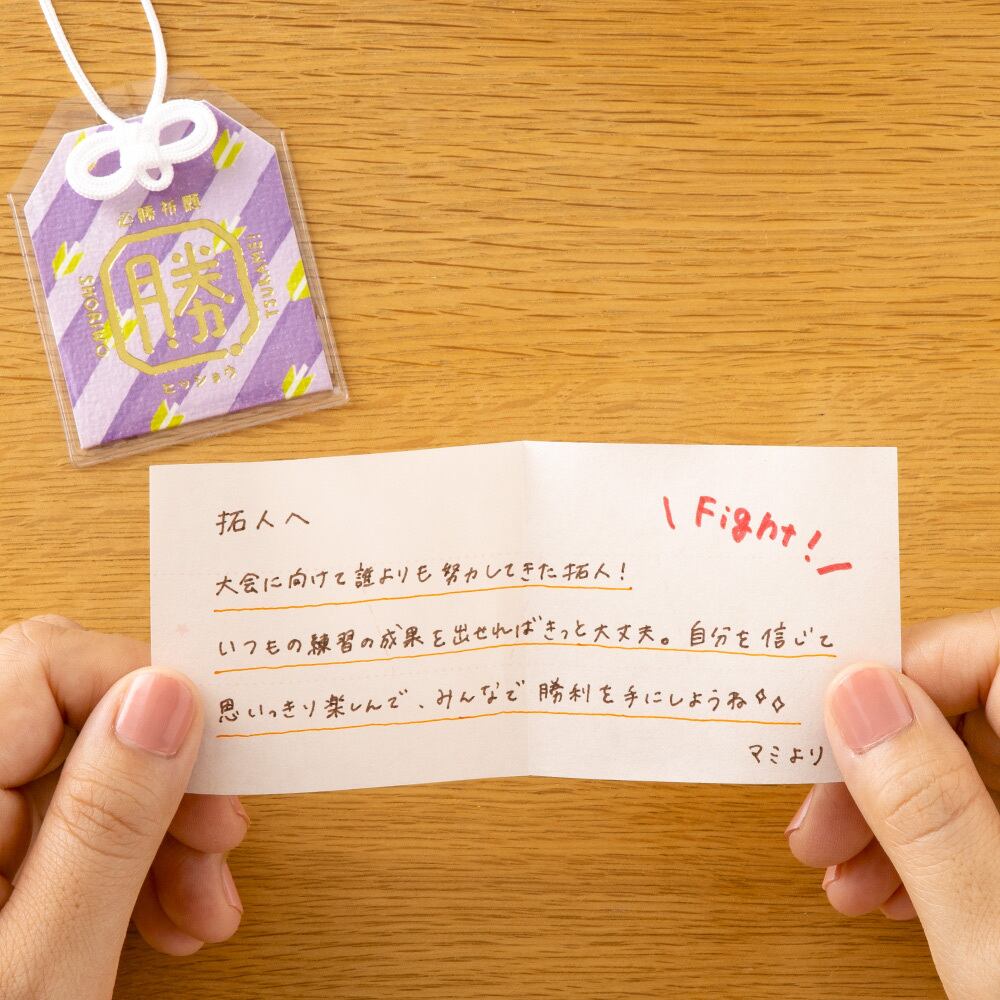 必勝祈願
勝
SHORI WO
TSUKAMEI!
ヒッショウ
拓人へ
\ Fight! /
大会に向けて誰よりも努力してきた拓人!
いつもの練習の成果を出せればきっと大丈夫。自分を信じて
思いっきり楽しんで、みんなで勝利を手にしようね
マミより